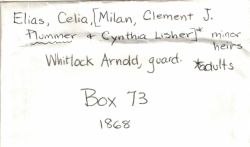 Elias, Celia, [Milan, Clement J.
Plummer & Cynthia Lisher]* minor
heirs
Whitlock Arnold, guard. *adults
Box 73
1868